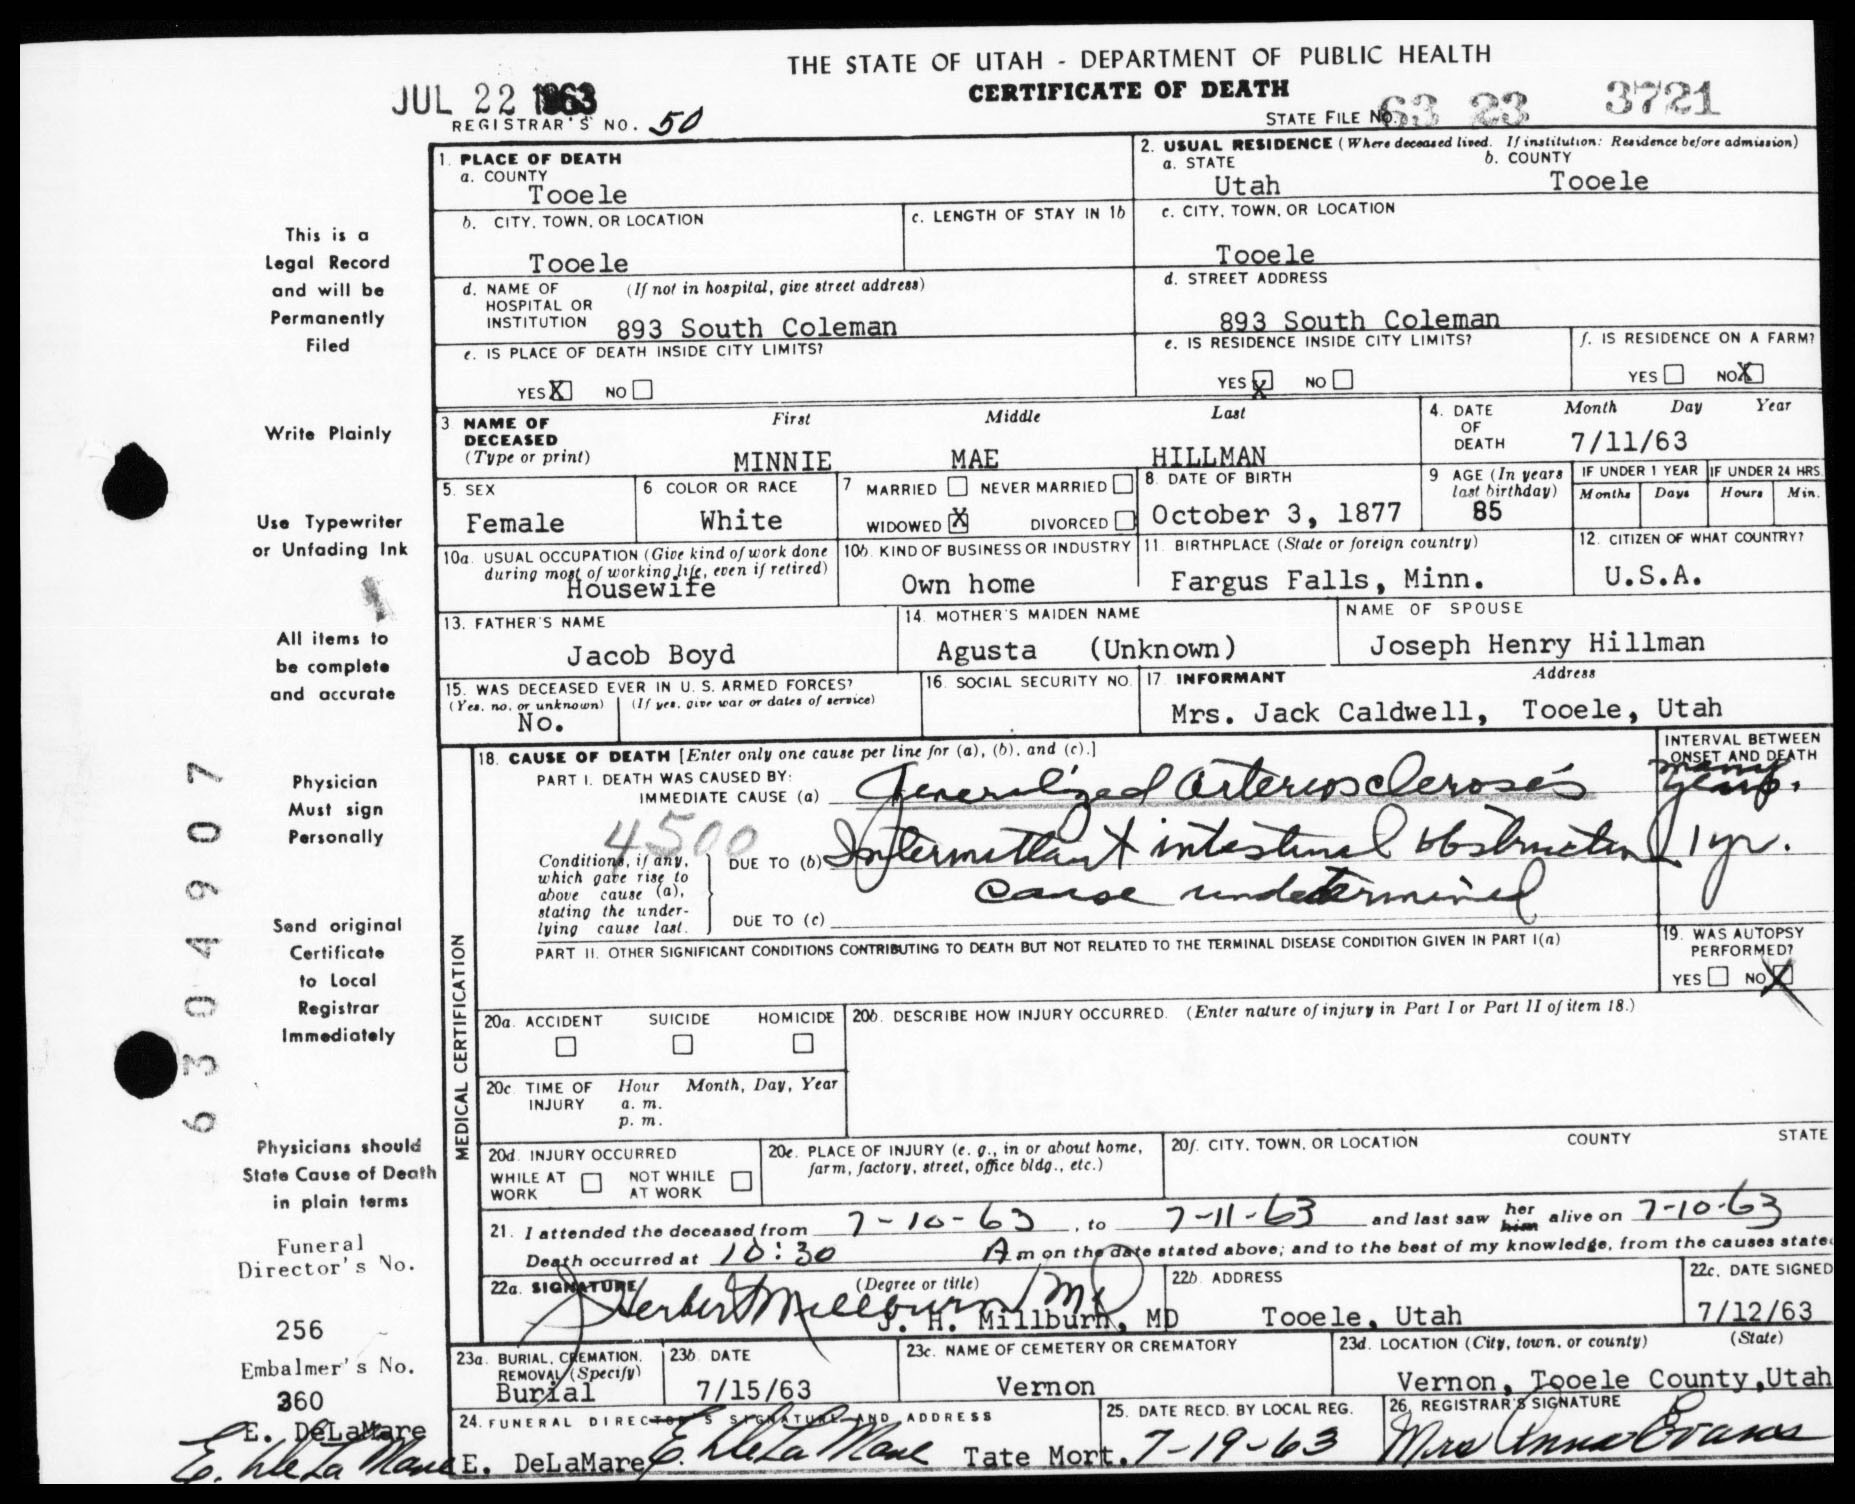 THE STATE OF UTAH - DEPARTMENT OF PUBLIC HEALTH
CERTIFICATE OF DEATH
JUL 22 1963
REGISTRAR'S NO. 50
STATE FILE NO. 63 23 3721
1. PLACE OF DEATH
a. COUNTY
Tooele
2. USUAL RESIDENCE (Where deceased lived. If institution: Residence before admission)
a. STATE b. COUNTY
Utah Tooele
b. CITY, TOWN, OR LOCATION
Tooele
c. LENGTH OF STAY IN 1b
c. CITY, TOWN, OR LOCATION
Tooele
d. NAME OF (If not in hospital, give street address)
HOSPITAL OR
INSTITUTION 893 South Coleman
d. STREET ADDRESS
893 South Coleman
e. IS PLACE OF DEATH INSIDE CITY LIMITS?
YES X NO
e. IS RESIDENCE INSIDE CITY LIMITS?
YES X NO
f. IS RESIDENCE ON A FARM?
YES NO X
3 NAME OF DECEASED
(Type or print)
First Middle Last
MINNIE MAE HILLMAN
4. DATE OF DEATH
Month Day Year
7/11/63
5. SEX
Female
6 COLOR OR RACE
White
7 MARRIED NEVER MARRIED
WIDOWED X DIVORCED
8. DATE OF BIRTH
October 3, 1877
9 AGE (In years
last birthday)
85
IF UNDER 1 YEAR IF UNDER 24 HRS.
Months Days Hours Min.
10a. USUAL OCCUPATION (Give kind of work done
during most of working life, even if retired)
Housewife
10b. KIND OF BUSINESS OR INDUSTRY
Own home
11. BIRTHPLACE (State or foreign country)
Fargus Falls, Minn.
12. CITIZEN OF WHAT COUNTRY?
U.S.A.
13. FATHER'S NAME
Jacob Boyd
14. MOTHER'S MAIDEN NAME
Agusta (Unknown)
NAME OF SPOUSE
Joseph Henry Hillman
15. WAS DECEASED EVER IN U. S. ARMED FORCES?
(Yes, no, or unknown) (If yes, give war or dates of service)
No.
16. SOCIAL SECURITY NO.
17 INFORMANT Address
Mrs. Jack Caldwell, Tooele, Utah
MEDICAL CERTIFICATION
18. CAUSE OF DEATH [Enter only one cause per line for (a), (b), and (c).]
INTERVAL BETWEEN
ONSET AND DEATH
PART I. DEATH WAS CAUSED BY:
IMMEDIATE CAUSE (a) Generalized arteriosclerosis many years.
4500
Conditions, if any,
which gave rise to
above cause (a),
stating the under-
lying cause last.
DUE TO (b) Intermittant intestinal obstruction 1 yr.
cause undetermined
DUE TO (c)
PART II. OTHER SIGNIFICANT CONDITIONS CONTRIBUTING TO DEATH BUT NOT RELATED TO THE TERMINAL DISEASE CONDITION GIVEN IN PART I(a)
19. WAS AUTOPSY
PERFORMED?
YES NO X
20a. ACCIDENT SUICIDE HOMICIDE
20b. DESCRIBE HOW INJURY OCCURRED. (Enter nature of injury in Part I or Part II of item 18.)
20c. TIME OF INJURY
Hour Month, Day, Year
a. m.
p. m.
20d. INJURY OCCURRED
WHILE AT WORK NOT WHILE AT WORK
20e. PLACE OF INJURY (e. g., in or about home,
farm, factory, street, office bldg., etc.)
20f. CITY, TOWN, OR LOCATION COUNTY STATE
21. I attended the deceased from 7-10-63, to 7-11-63 and last saw her him alive on 7-10-63
Death occurred at 10:30 A m on the date stated above; and to the best of my knowledge, from the causes state
22a. SIGNATURE (Degree or title)
J Herbert Millburn MD
J. H. Millburn, MD
22b. ADDRESS
Tooele, Utah
22c. DATE SIGNED
7/12/63
23a. BURIAL, CREMATION,
REMOVAL (Specify)
Burial
23b. DATE
7/15/63
23c. NAME OF CEMETERY OR CREMATORY
Vernon
23d. LOCATION (City, town, or county) (State)
Vernon, Tooele County, Utah
24. FUNERAL DIRECTOR'S SIGNATURE AND ADDRESS
E. DeLaMare E. DeLaMare Tate Mort.
25. DATE RECD. BY LOCAL REG.
7-19-63
26. REGISTRAR'S SIGNATURE
Mrs Anna Evans
This is a
Legal Record
and will be
Permanently
Filed
Write Plainly
Use Typewriter
or Unfading Ink
All items to
be complete
and accurate
Physician
Must sign
Personally
Send original
Certificate
to Local
Registrar
Immediately
Physicians should
State Cause of Death
in plain terms
Funeral
Director's No.
256
Embalmer's No.
360
E. DeLaMare
E. DeLaMare
6304907